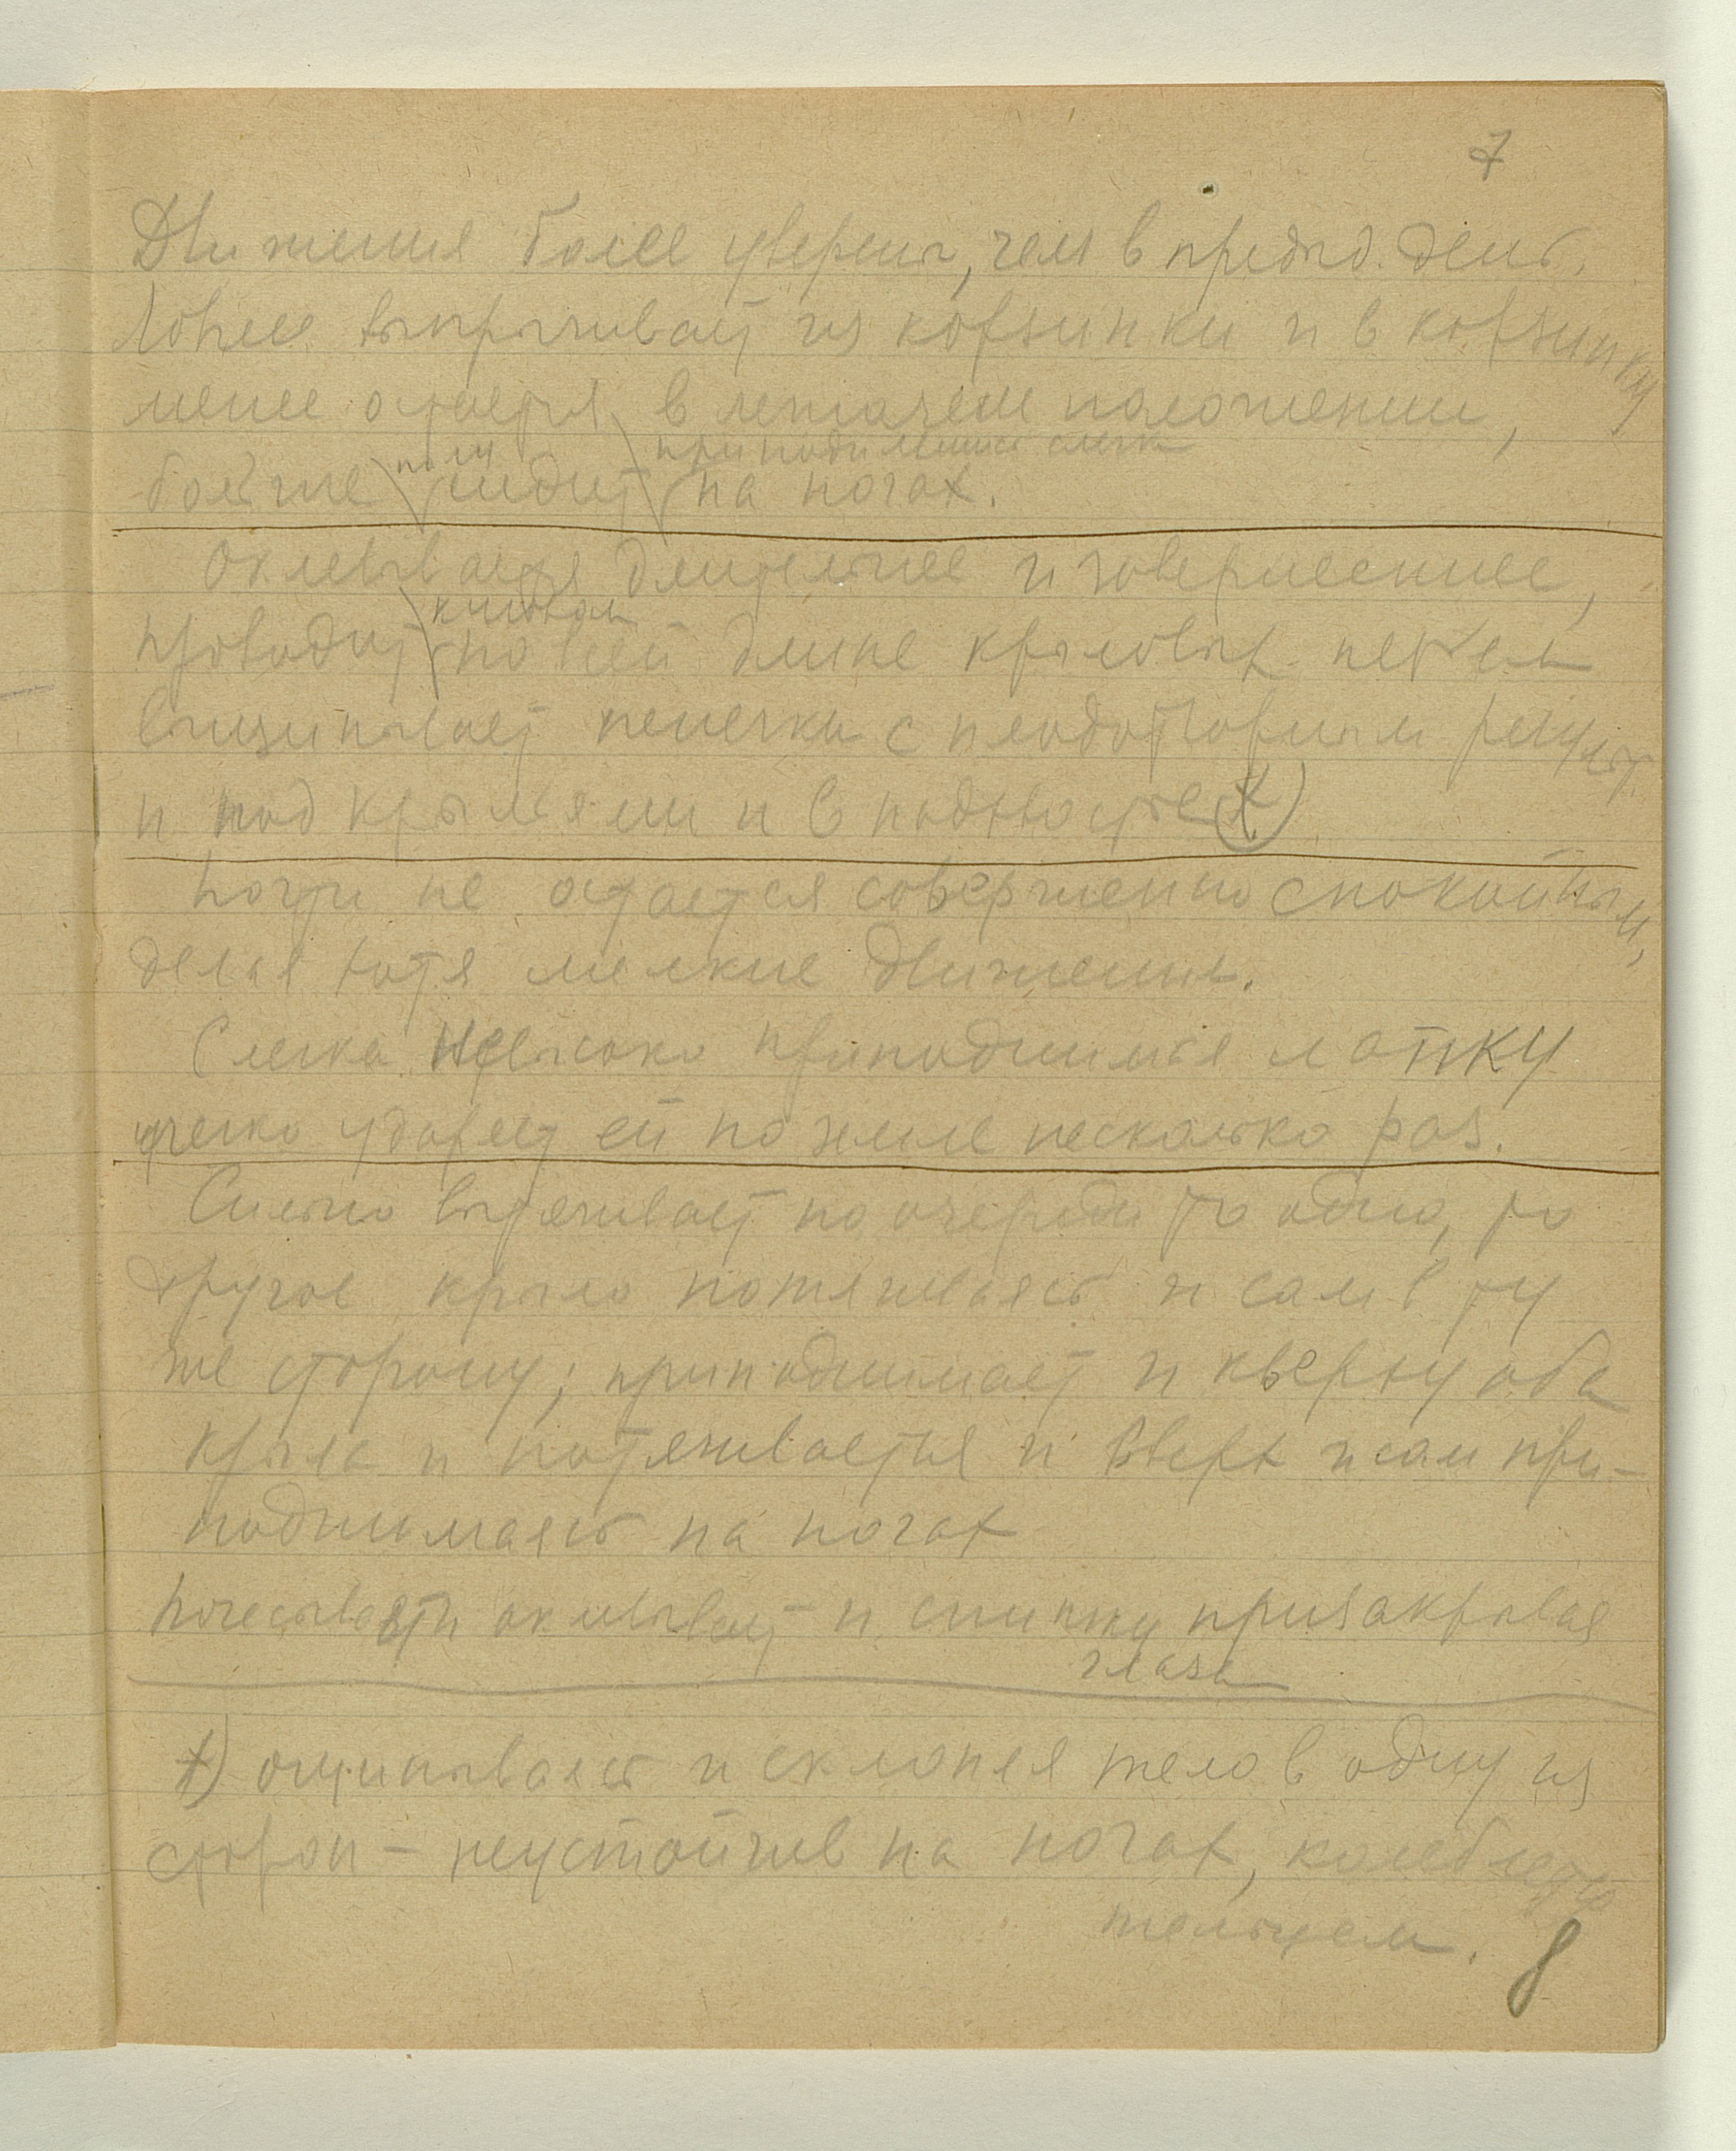 7
Движения более уверены, чем в предыд. день.
Ловчее выпрыгивает из корзинки и в корзинку
менее остается в лежачем положении,
полу приподнимаясь слегка
больше сидит на ногах.
Оклевывается длительнее и совершеннее,
клювом
проводит по всей длине крыловых перьев
выщипывает пенечки с плодотворным результ.
и под крыльями и в подхвостье x)
Почти не остается совершенно спокойным,
делая хотя мелкие движения.
Слегка невысоко приподнимая лапку
мелко ударяет ей по земле несколько раз.
Сильно вытягивает по очереди то одно, то
другое крыло потягиваясь и сам в ту
же сторону; приподнимает и кверху оба
крыла и потягивается и вверх и сам при-
поднимаясь на ногах
Почесывает и оклевывает и спинку призакрывая
глаза
x) ощипываясь и склоняя тело в одну из
сторон – неустойчив на ногах, колеблется
тельцем.
8